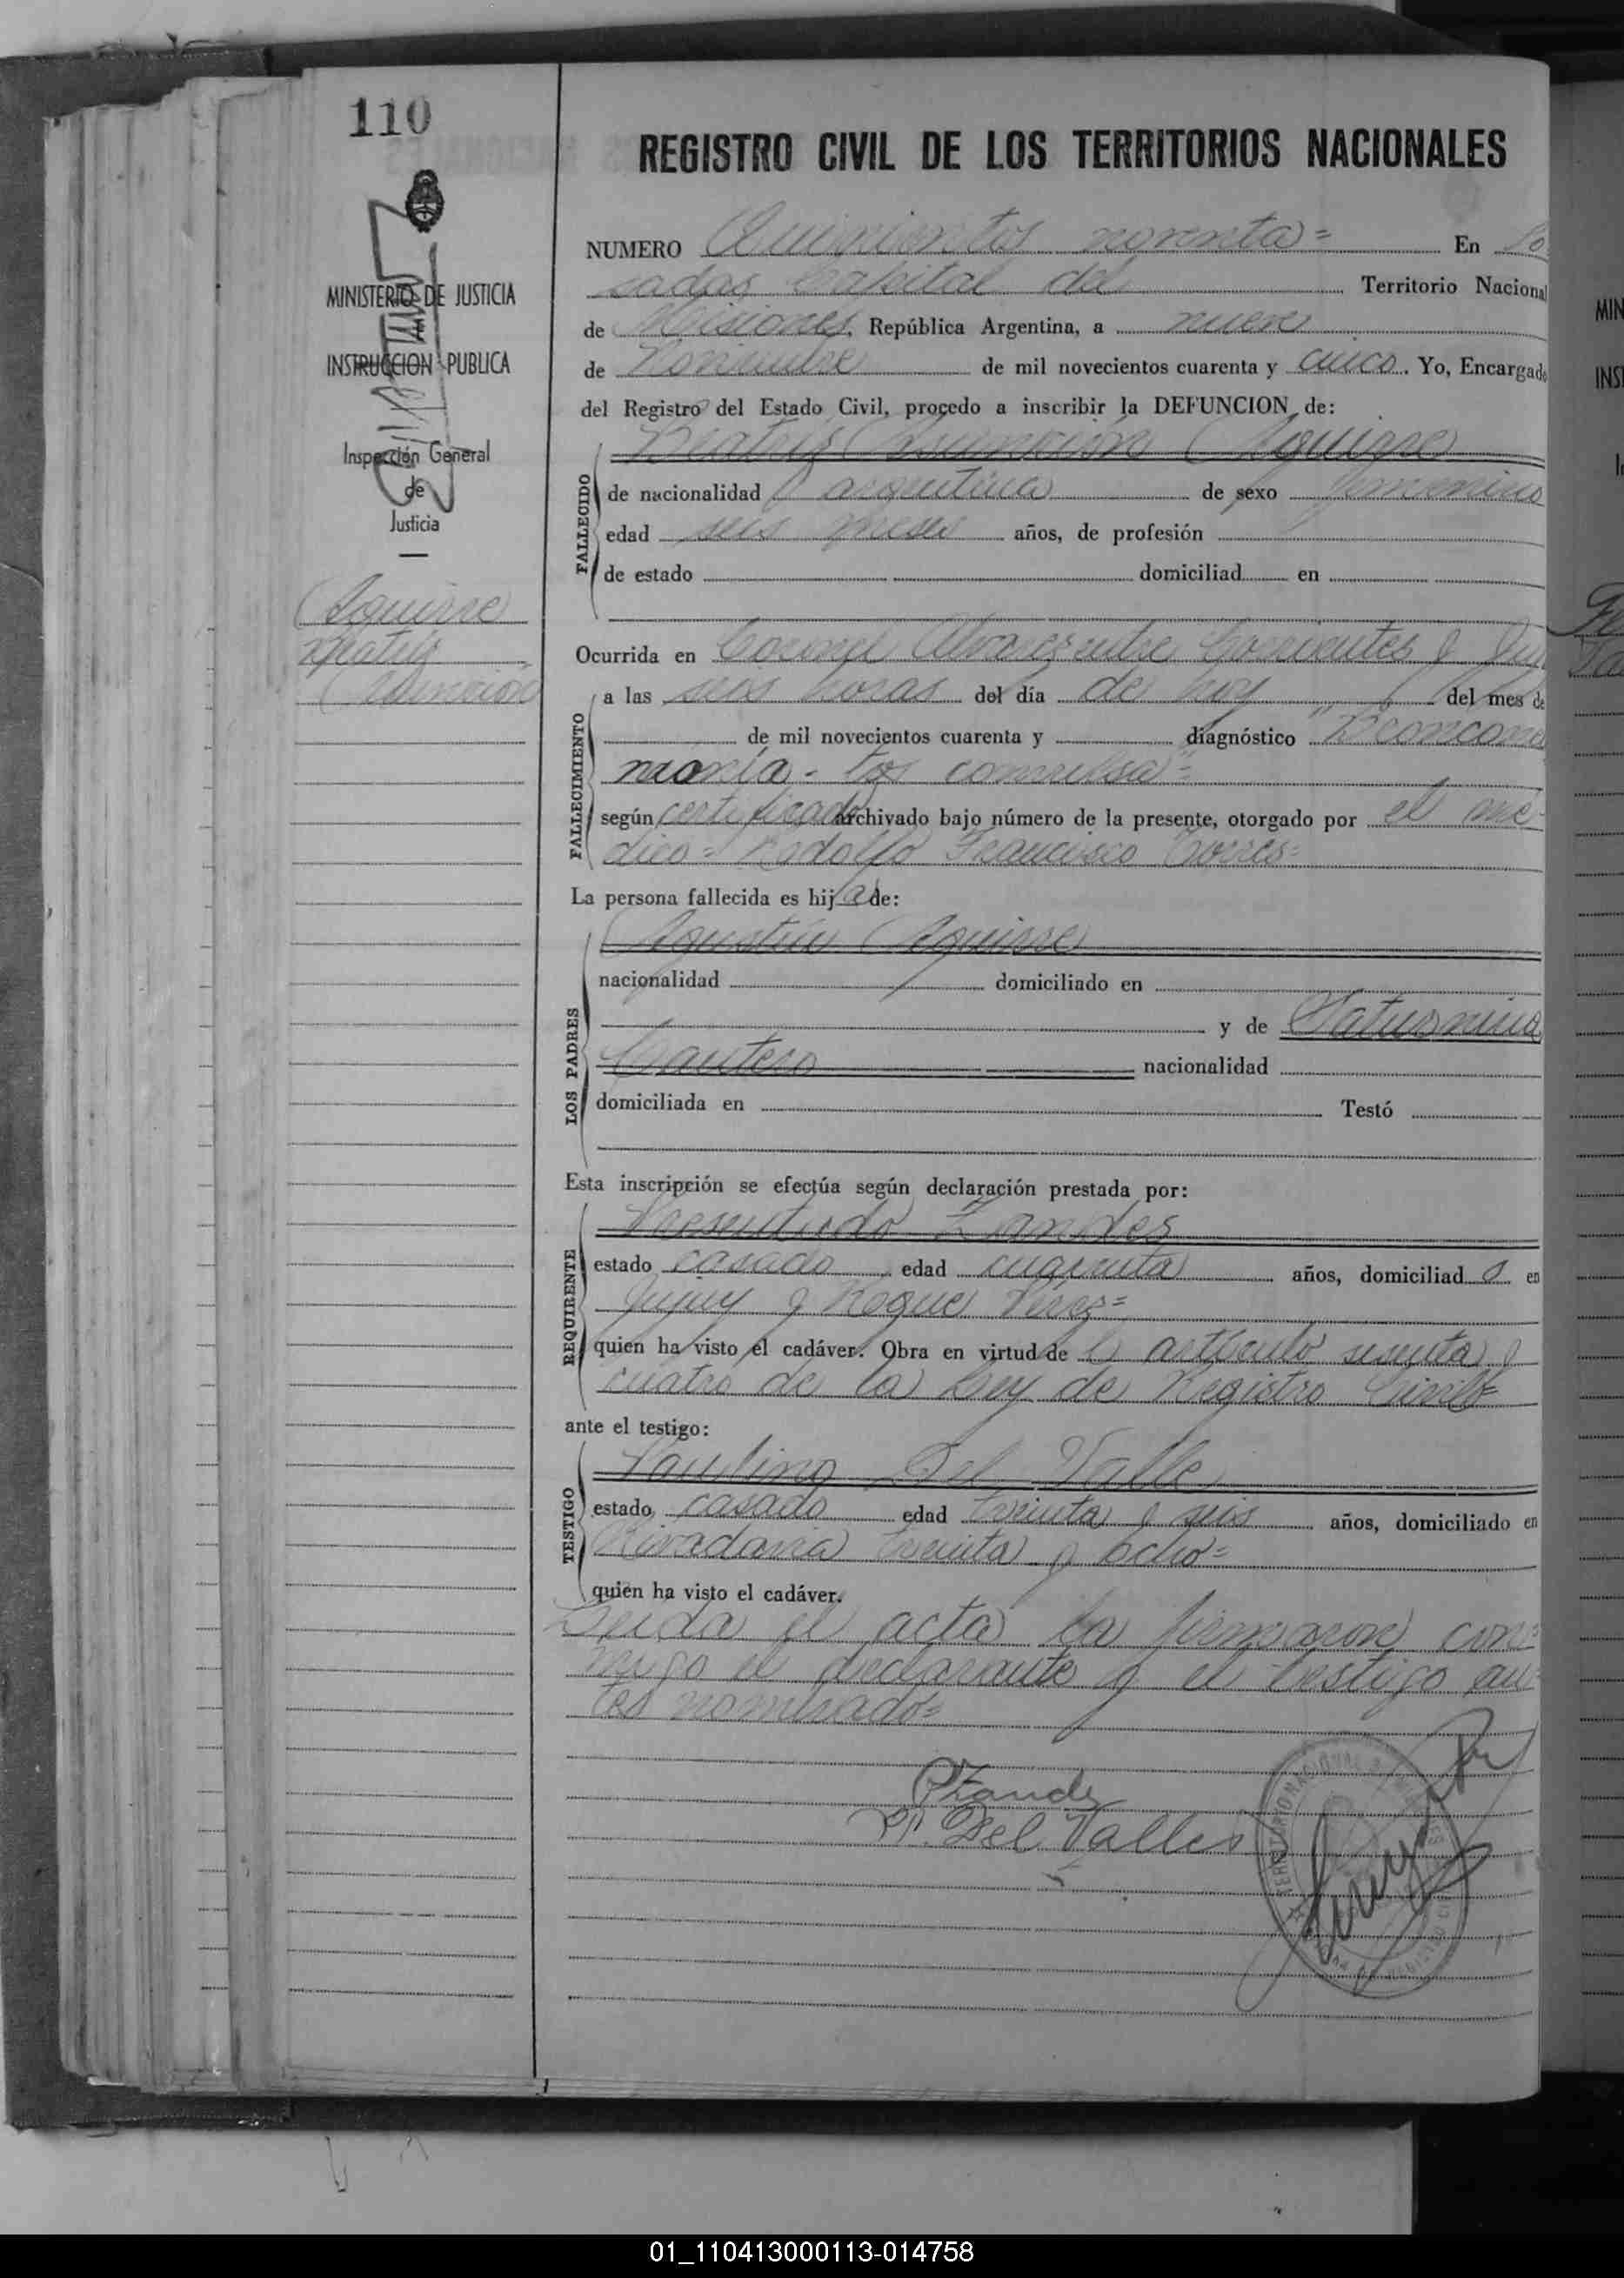 110
MINISTERIO DE JUSTICIA
INSTRUCCION PUBLICA
Inspección General
de
Justicia
Aguirre
Beatriz
Asunción
REGISTRO CIVIL DE LOS TERRITORIOS NACIONALES
NUMERO Quinientos noventa= En Po
sadas Capital del Territorio Nacional
de Misiones, República Argentina, a nueve
de Noviembre de mil novecientos cuarenta y cinco. Yo, Encargado
del Registro del Estado Civil, procedo a inscribir la DEFUNCION de:
Beatriz Asunción Aguirre
FALLECIDO
de nacionalidad argentina de sexo femenino
edad seis meses años, de profesión
de estado domiciliad en
Ocurrida en Coronel Alvarez entre Corrientes y
FALLECIMIENTO
a las seis horas del día de hoy del mes de
de mil novecientos cuarenta y diagnóstico "Bronconeu
monía - tos convulsa"=
según certificado archivado bajo número de la presente, otorgado por el mé-
dico= Rodolfo Francisco Torres=
La persona fallecida es hija de:
LOS PADRES
Agustín Aguirre
nacionalidad domiciliado en
y de Saturnina
Cantero nacionalidad
domiciliada en Testó
Esta inscripción se efectúa según declaración prestada por:
REQUIRENTE
Presentado Zandes
estado casado edad cuarenta años, domiciliado en
Jujuy y Roque Pérez=
quien ha visto el cadáver. Obra en virtud de l artículo sesenta y
cuatro de la Ley de Registro Civil=
ante el testigo:
TESTIGO
Paulino Del Valle
estado casado edad treinta y seis años, domiciliado en
Rivadavia treinta y ocho=
quien ha visto el cadáver.
Leida el acta la firmaron con=
migo el declarante y el testigo an
tes nombrado=
PZandes
P. Del Valle
01_110413000113-014758